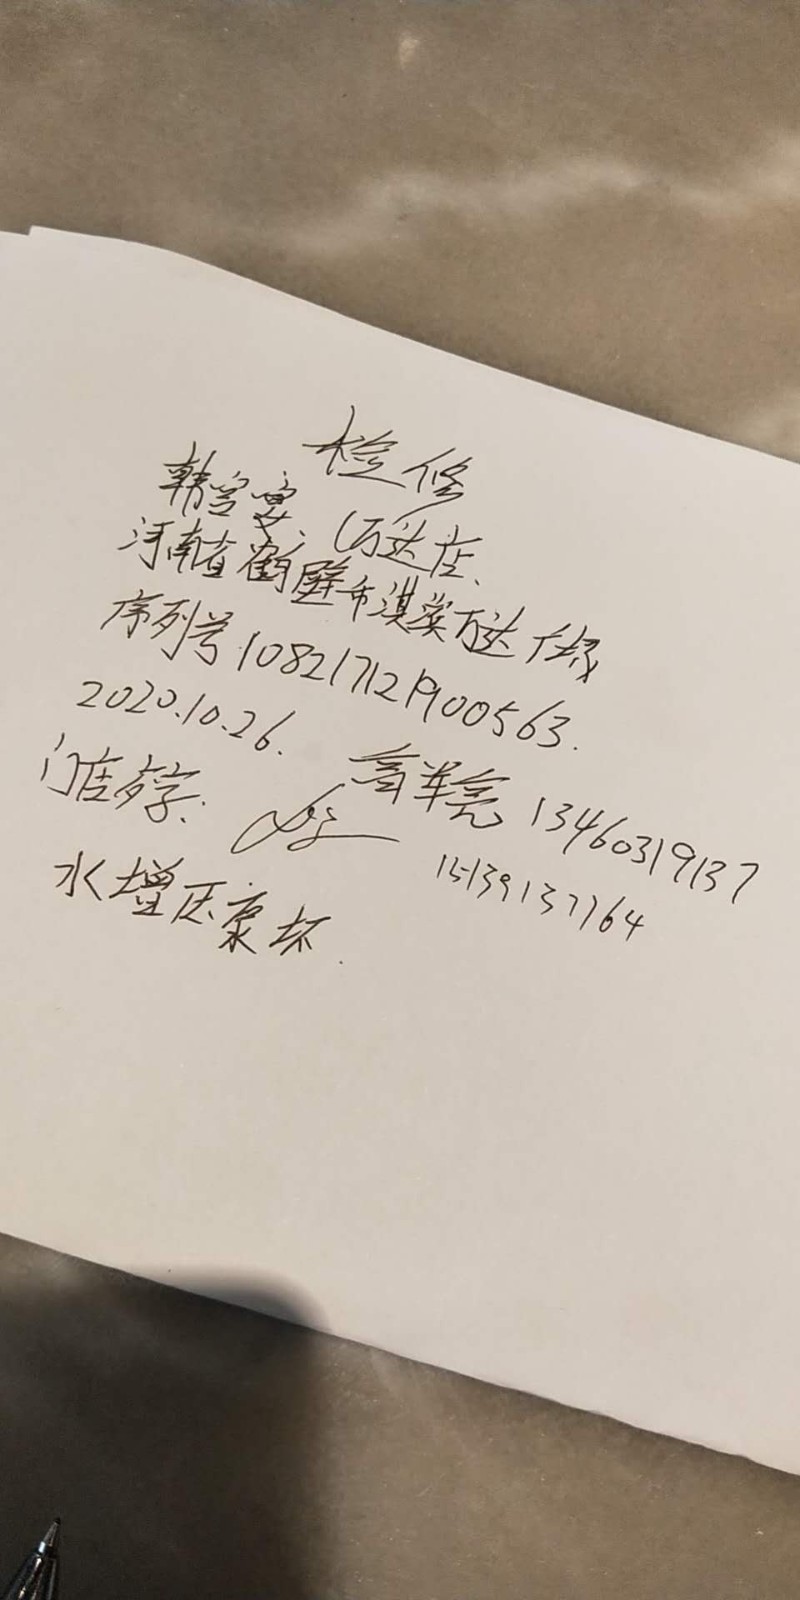 检修
韩宫宴、(万达店、
河南省鹤壁市淇滨万达
序列号108217121900563.
2020.10.26.
13460319137
门店签字:
15139137764
水增压泵坏.